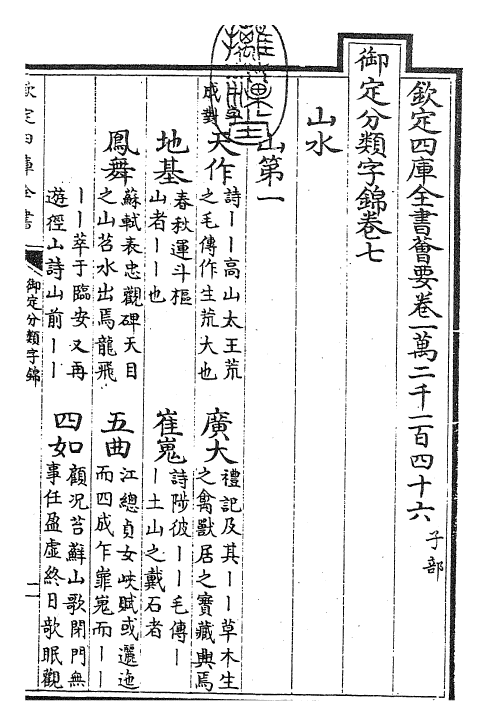 欽定四庫全書薈要卷一萬二千一百四十六 子部
御定分類字錦卷七
山水
山第一
成對
天作 詩ーー高山太王荒
之毛傳作生荒大也
廣大 禮記及其ーー草木生
之禽獸居之寶藏興焉
地基 春秋運斗樞
山者ーー也
崔嵬 詩陟彼ーー毛傳ー
ー土山之戴石者
鳳舞 蘇軾表忠觀碑天目
之山苕水出焉龍飛
ーー萃于臨安又再
遊徑山詩山前ーー
五曲 江總貞女峽賦或邐迤
而四成乍嶊嵬而ーー
四如 顧况苔蘚山歌閉門無
事任盈虛終日欹眠觀
欽定四庫全書
御定分類字錦